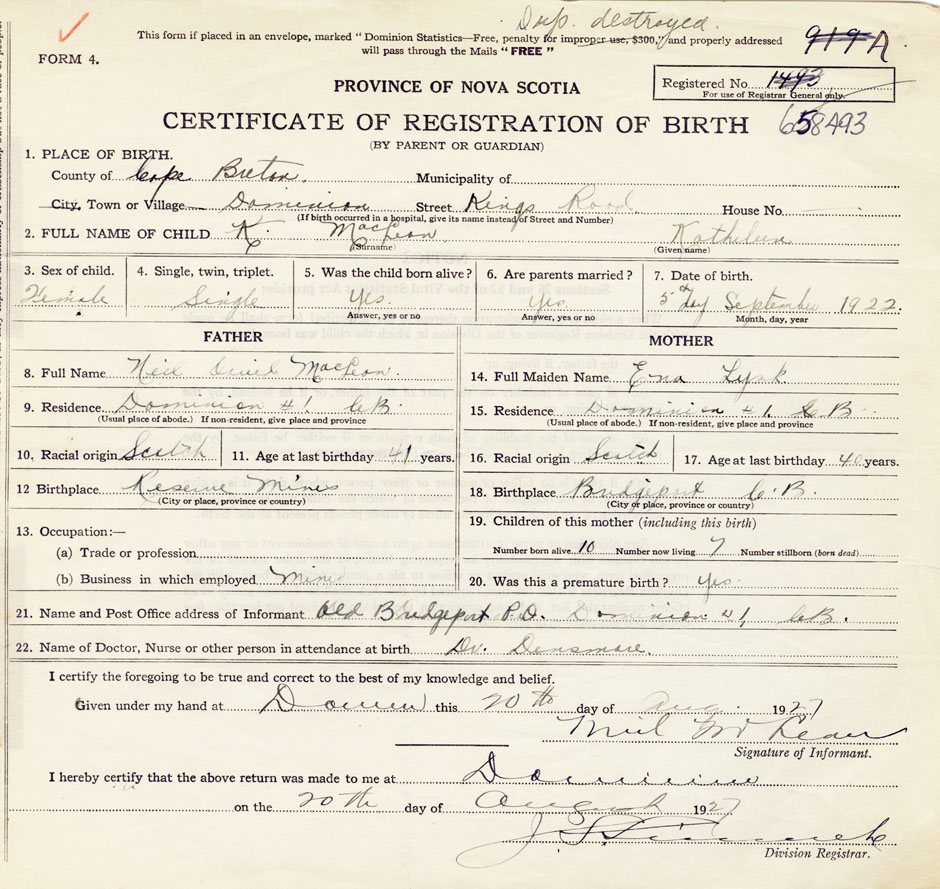 Dup. destroyed.
This form if placed in an envelope, marked "Dominion Statistics—Free, penalty for improper use, $300," and properly addressed
will pass through the Mails "FREE"
919A
FORM 4.
PROVINCE OF NOVA SCOTIA
Registered No. 1493
For use of Registrar General only.
CERTIFICATE OF REGISTRATION OF BIRTH
658493
(BY PARENT OR GUARDIAN)
1. PLACE OF BIRTH.
County of Cape Breton. Municipality of
City, Town or Village Dominion Street Kings Road House No.
(If birth occurred in a hospital, give its name instead of Street and Number)
2. FULL NAME OF CHILD K. MacLean Kathleen
(Surname) (Given name)
3. Sex of child. 4. Single, twin, triplet. 5. Was the child born alive? 6. Are parents married? 7. Date of birth.
Female Single Yes. Yes. 5th day September 1922.
Answer, yes or no Answer, yes or no Month, day, year
FATHER MOTHER
8. Full Name Neil MacLean.
14. Full Maiden Name Ena Lysk
9. Residence Dominion #1, CB.
15. Residence Dominion #1, C B
(Usual place of abode.) If non-resident, give place and province
(Usual place of abode.) If non-resident, give place and province
10. Racial origin Scotch 11. Age at last birthday 41 years.
16. Racial origin Scotch 17. Age at last birthday 40 years.
12 Birthplace Reserve Mines
18. Birthplace Bridgeport C.B.
(City or place, province or country)
(City or place, province or country)
13. Occupation:—
19. Children of this mother (including this birth)
(a) Trade or profession
Number born alive 10 Number now living 7 Number stillborn (born dead)
(b) Business in which employed Mines
20. Was this a premature birth? Yes
21. Name and Post Office address of Informant Old Bridgeport P.O. Dominion #1, CB.
22. Name of Doctor, Nurse or other person in attendance at birth Dr. Densmore.
I certify the foregoing to be true and correct to the best of my knowledge and belief.
Given under my hand at this 20th day of Aug. 1927
Neil McLean
Signature of Informant.
I hereby certify that the above return was made to me at Dominion
on the 20th day of August 1927
Division Registrar.